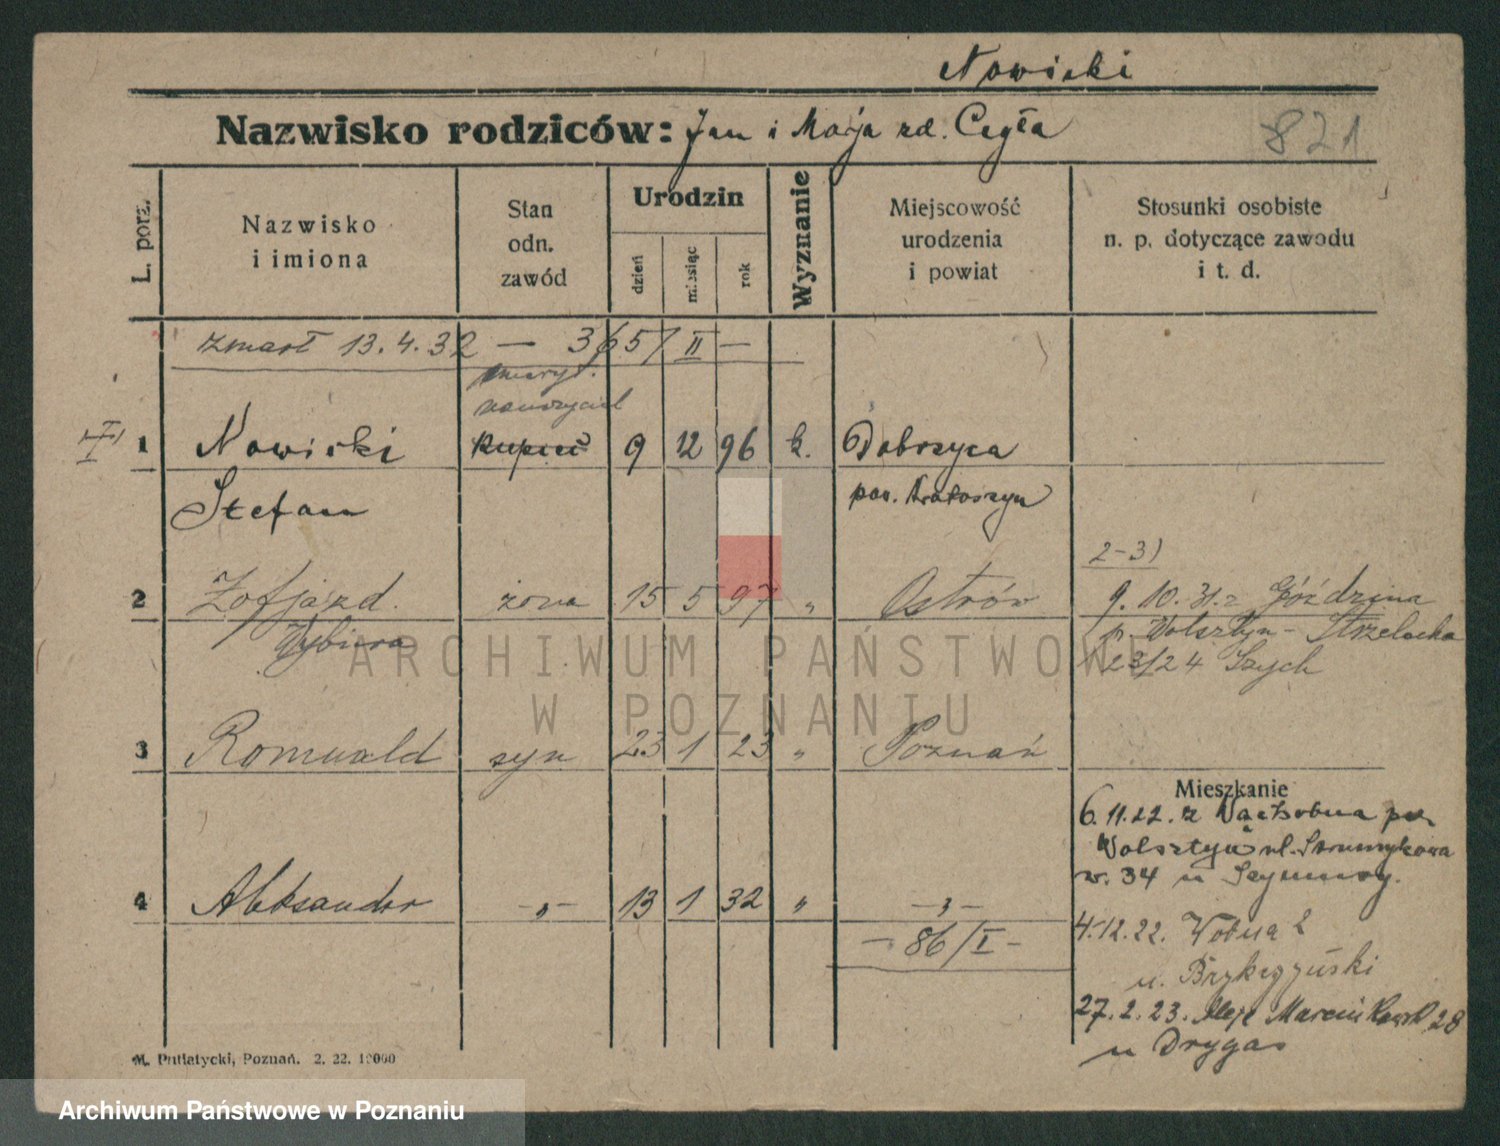 Nowicki
Nazwisko rodziców: Jan i Marja zd. Cegła
821
L. porz.
Nazwisko
i imiona
Stan
odn.
zawód
Urodzin
dzień
miesiąc
rok
Wyznanie
Miejscowość
urodzenia
i powiat
Stosunki osobiste
n. p. dotyczące zawodu
i t. d.
zmarł 13.4.32 — 3657/II —
emeryt.
nauczyciel
1 Nowicki kupiec 9 12 96 k. Dobrzyca
Stefan pow. Krotoszyn
2-3)
2 Zofja zd. żona 15 5 97 „ Ostrów 9.10.31. z Góździna
Wybiera p. Wolsztyn - Strzelecka
23/24 Szych
3 Romuald syn 23 1 23 „ Poznań
Mieszkanie
6.11.22. z
Wolsztyn ul. Strumykowa
w. 34 u
4 Aleksander -„- 13 1 32 „ -„-
4.12.22. Wodna 2
- 86/I -
u.
27.2.23. Aleje Marcinkowsk. 28
u Drygas
M. Putiatycki, Poznań. 2. 22. 10000
ARCHIWUM PAŃSTWOWE
W POZNANIU
Archiwum Państwowe w Poznaniu